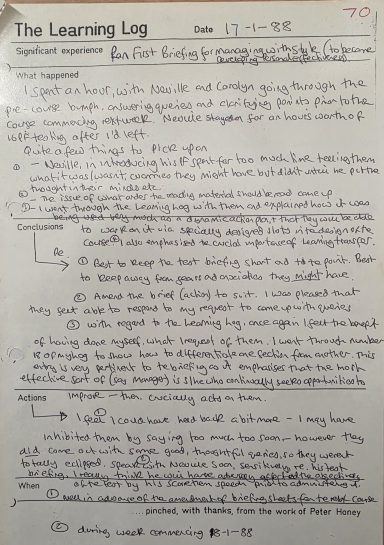 70
The Learning Log Date 17-1-88
Significant experience Ran First Briefing for managing with style (to become
Developing Personal Effectiveness)
What happened
I spent an hour, with Neville and Carolyn going through the
pre-course bumph, answering queries and clarifying points prior to the
course commencing next week. Neville stayed on for an hours worth of
16PF testing after I'd left.
Quite a few things to pick up on
① - Neville, in introducing his 16PF spent far too much time telling them
what it was/wasn't, worries they might have but didn't until he put the
thought in their minds etc.
② - The issue of what order the reading material should be read came up
③ - I went through the Learning Log with them and explained how it was
being used very much as a dynamic action plan, that they will be able
to work on it via specially designed slots in the design of the
course. I also emphasised the crucial importance of learning transfer.
Conclusions
Re.
① Best to keep the test briefing short and to the point. Best
to keep away from fears and anxieties they might have.
② Amend the brief (action) to suit. I was pleased that
they felt able to respond to my request to come up with queries
③ With regard to the Learning Log, once again I feel the benefit
of having done myself, what I request of them. I went through number
18 of my log to show how to differentiate one section from another. This
entry is very pertinent to the briefing as it emphasises that the most
effective sort of (say Manager) is s/he who continually seeks opportunities to
improve - then crucially acts on them.
Actions
① I feel I could have held back a bit more - I may have
inhibited them by saying too much too soon - however they
did come out with some good, thoughtful questions, so they weren't
totally eclipsed. Speak with Neville soon, sensitively, re. his test
briefing. I really think he will have adversely affected the objectives
of the test by his scaremongering speech prior to administering it.
When
① Well in advance of the amendment of briefing sheets for the next course
② during week commencing 18-1-88
...pinched, with thanks, from the work of Peter Honey